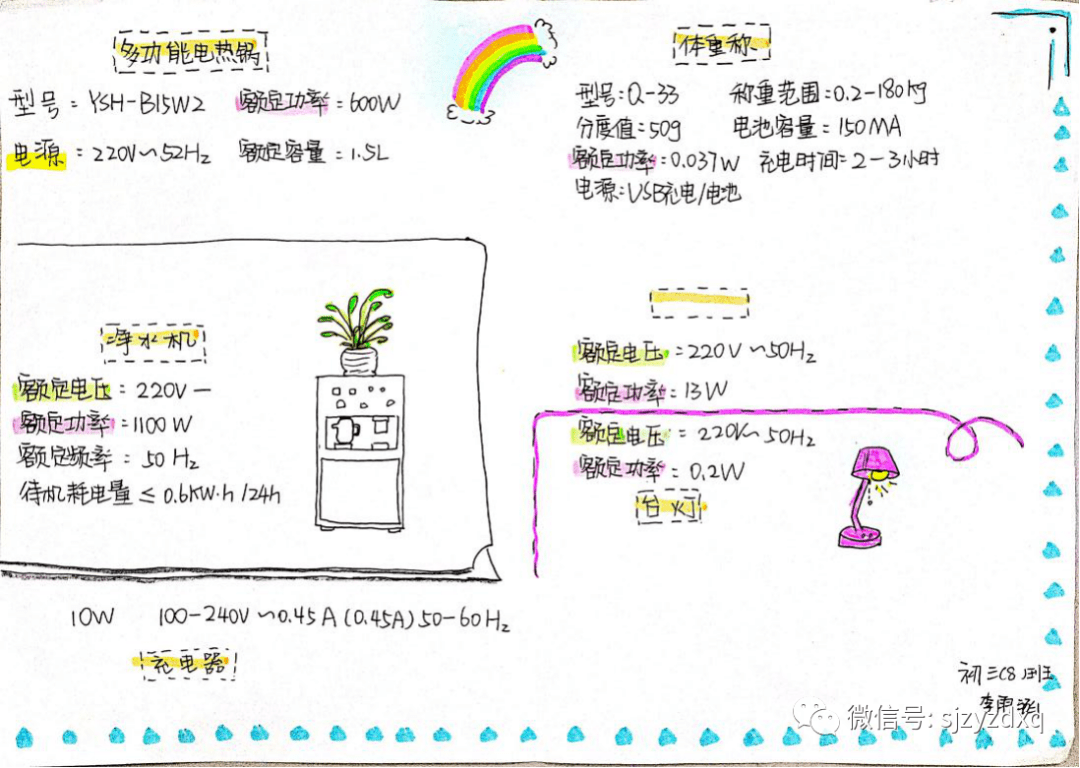 多功能电热锅
型号:YSH-B15W2 额定功率:600W
电源:220V~52Hz 额定容量:1.5L
体重称
型号:Q-33 称重范围:0.2-180kg
分度值:50g 电池容量:150MA
额定功率:0.037W 充电时间:2-3小时
电源:USB充电/电池
净水机
额定电压:220V—
额定功率:1100W
额定频率:50Hz
待机耗电量≤0.6KW·h/24h
额定电压:220V~50Hz
额定功率:13W
额定电压:220V~50Hz
额定功率:0.2W
台灯
10W 100-240V~0.45A(0.45A)50-60Hz
充电器
初三(8)班
李雨
微信号: sjzyzdxq